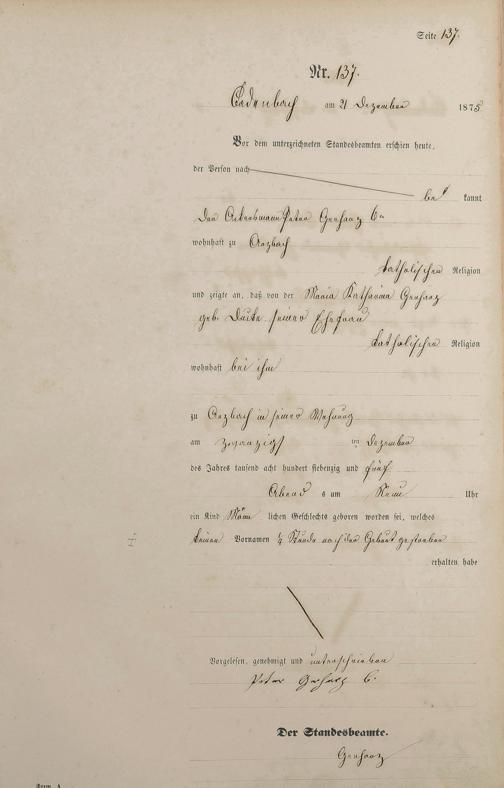 Seite 137.
Nr. 137.
Cadenbach am 21 Dezember 1875
Vor dem unterzeichneten Standesbeamten erschien heute,
der Person nach
be kannt
Der Ackersmann Peter Gerharz 6r
wohnhaft zu Arzbach
katholischer Religion
und zeigte an, daß von der Maria Katharina Gerharz
geb. seiner Ehefrau
katholischer Religion
wohnhaft bei ihm
zu Arzbach in seiner Wohnung
am zwanzigst ten Dezember
des Jahres tausend acht hundert siebenzig und fünf
Abend s um Neun Uhr
ein Kind Män lichen Geschlechts geboren worden sei, welches
keinen Vornamen ¼ Stunde nach der Geburt gestorben
erhalten habe
Vorgelesen, genehmigt und unterschrieben
Peter Gerharz 6.
Der Standesbeamte.
Gerharz